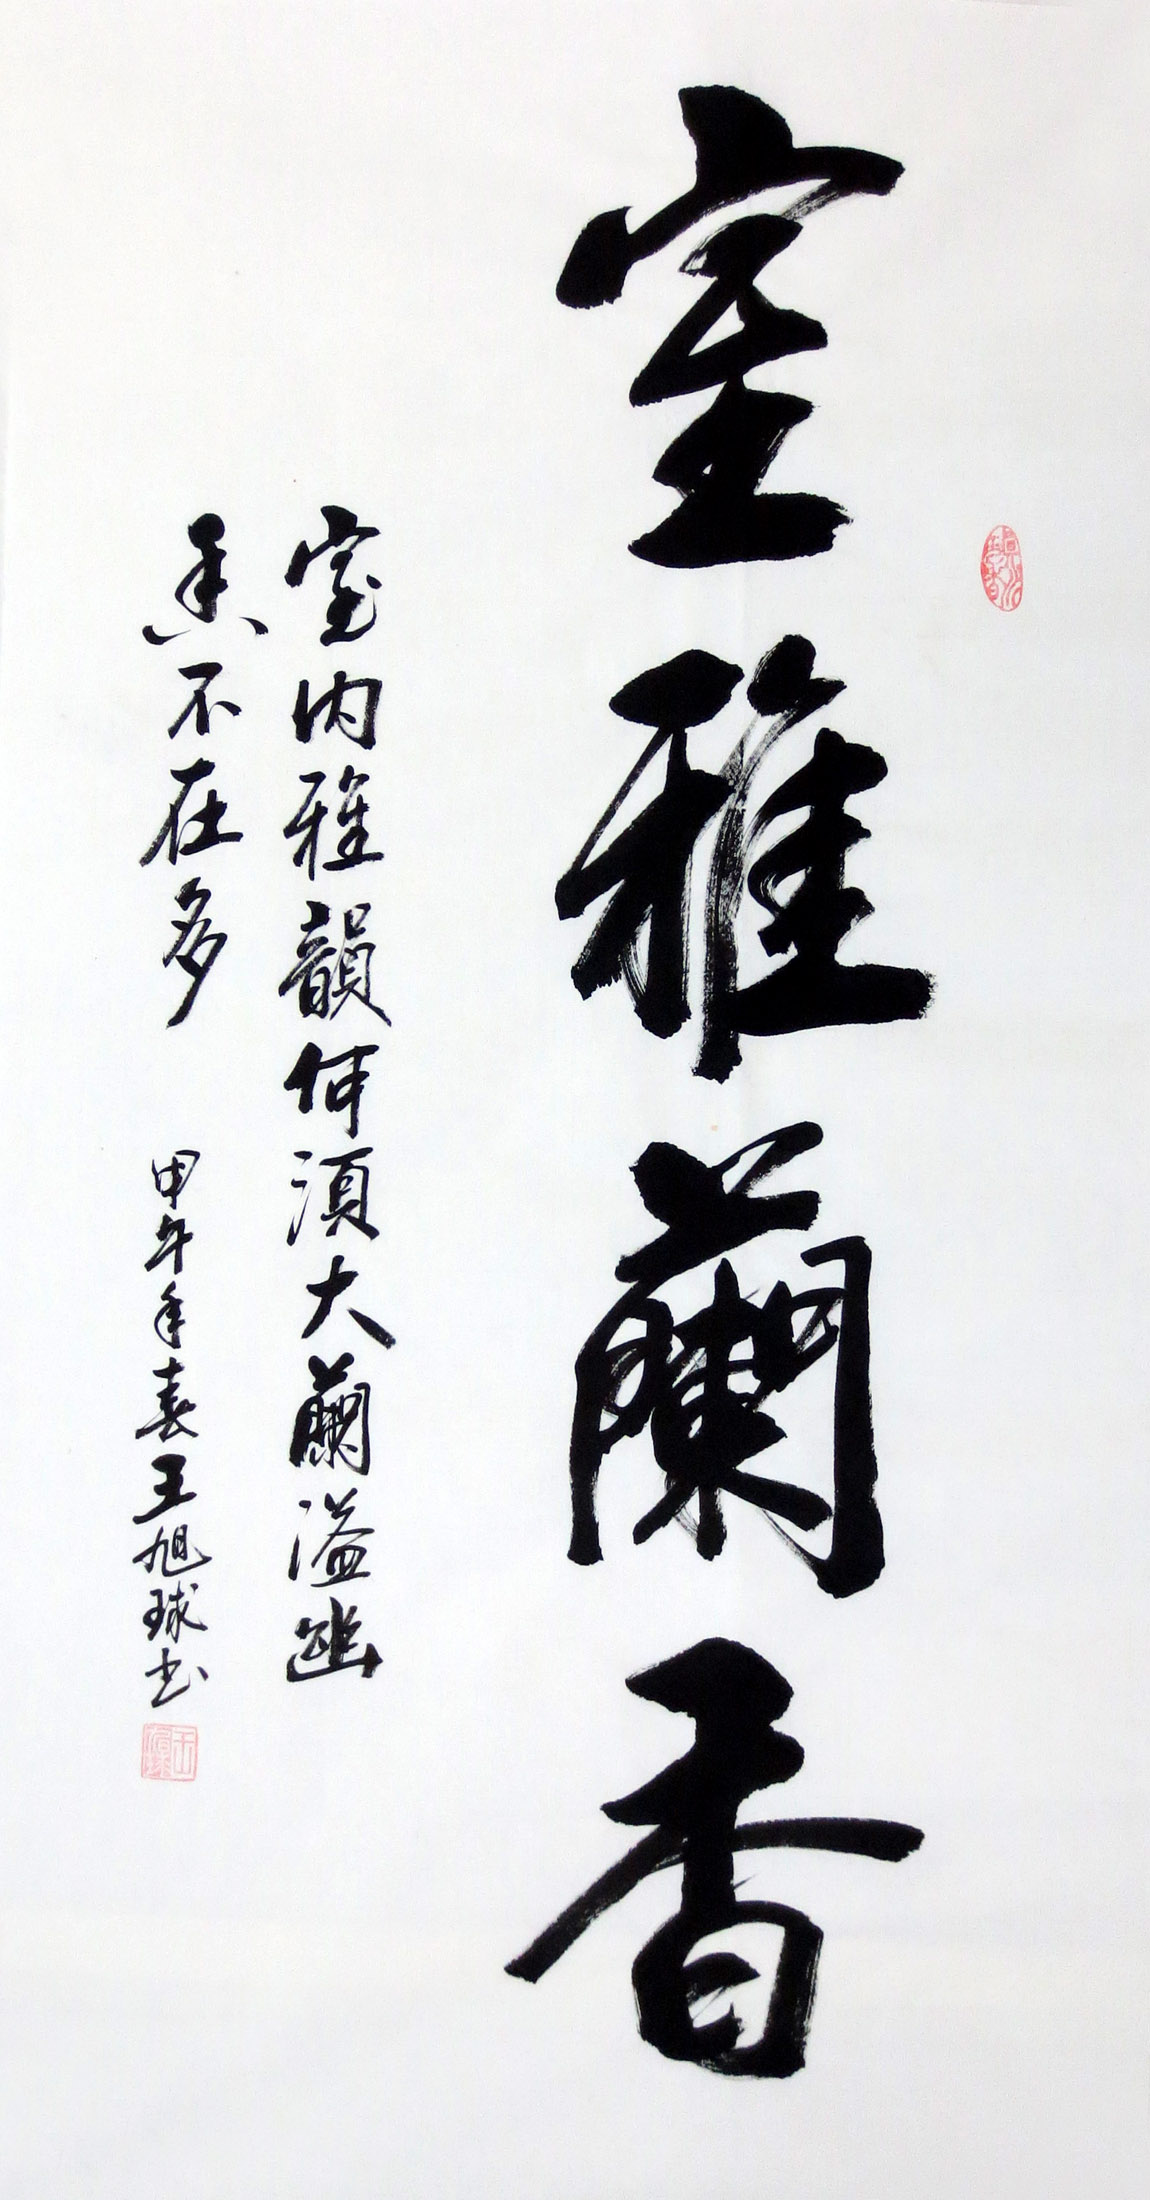 室雅蘭香
室内雅韻何須大蘭溢幽
香不在多 甲午年春王旭球书